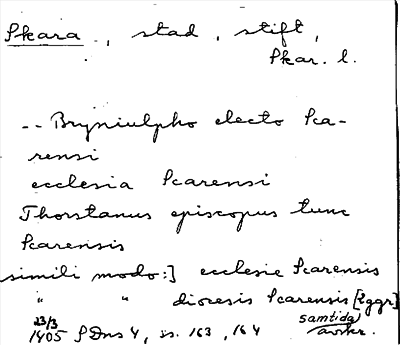 Skara, stad, stift,
Skar. l.
-- Bryniulpho electo Sca-
rensi
ecclesia Scarensi
Thorstanus episcopus tunc
Scarensis
simili modo:] ecclesie Scarensis
" " diocesis Scarensis [2ggr]
23/3 samtida
1405 SDns 1, ss. 163, 164 avskr.